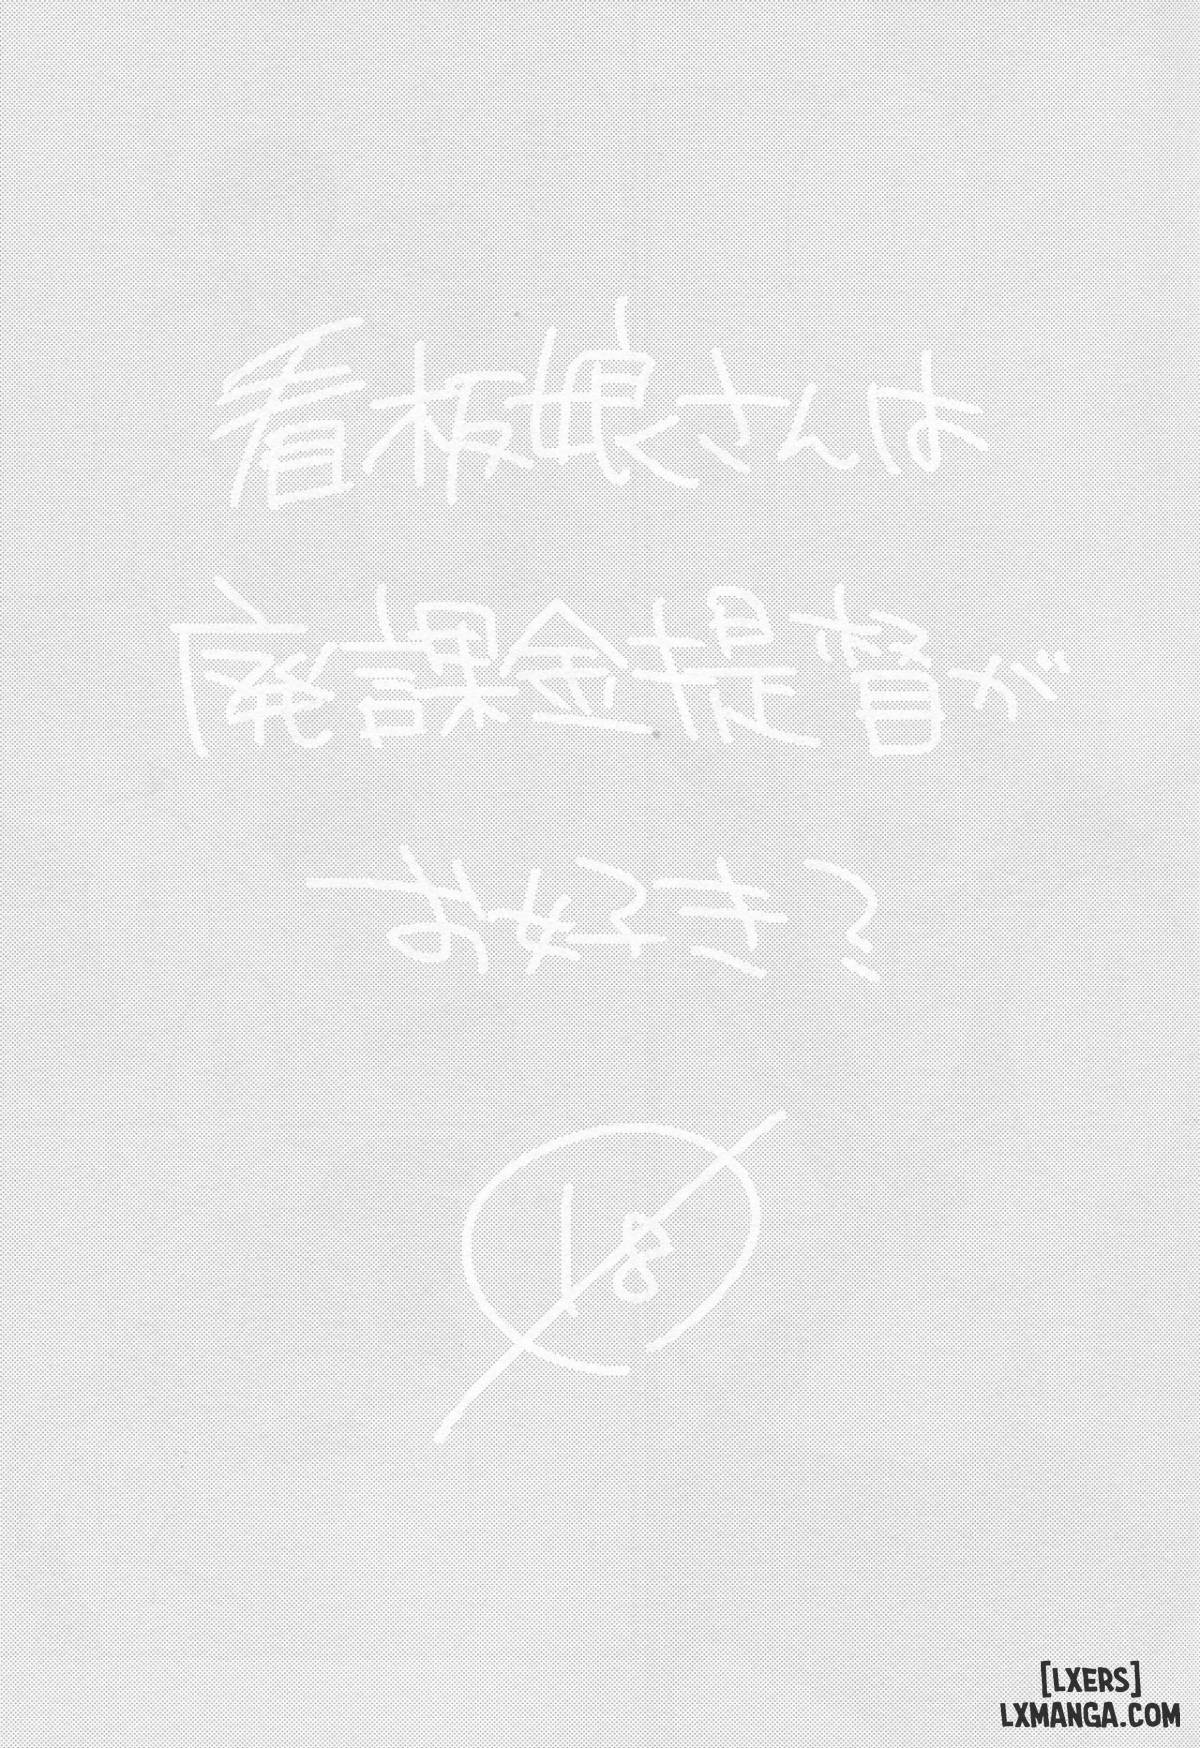 看板娘さんは
廃課金提督が
お好き?
18
[LXERS]
LXMANGA.COM